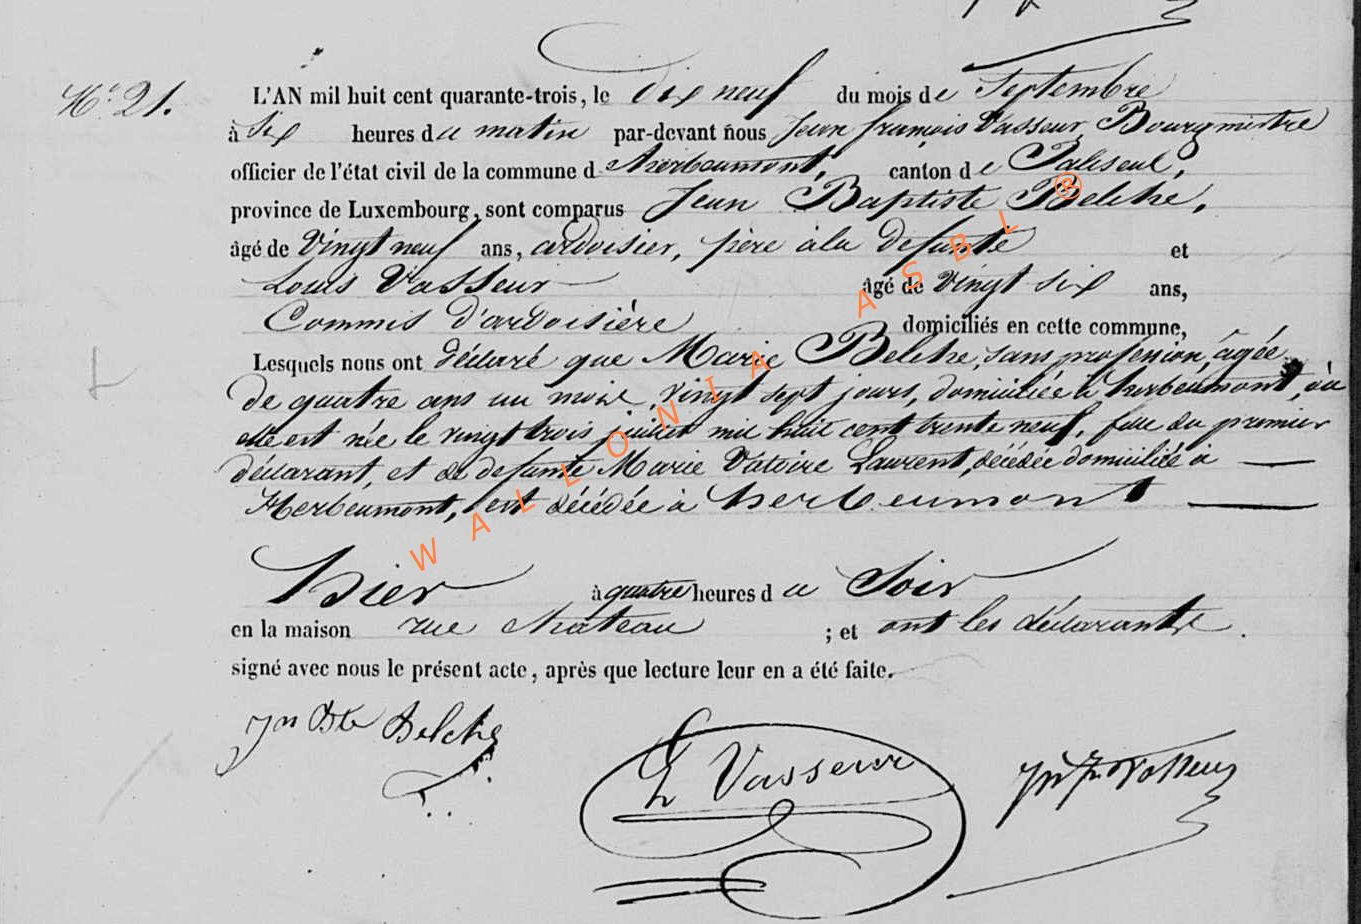 N.° 21.
L'AN mil huit cent quarante-trois, le dix neuf du mois de Septembre
à Six heures du matin par-devant nous Jean françois Vasseur, Bourgmistre
officier de l'état civil de la commune d'herbeumont, canton de Paliseul,
province de Luxembourg, sont comparus Jean Baptiste Belche,
âgé de Vingt neuf ans, ardoisier, père à la defunte et
Louis Vasseur âgé de Vingt six ans,
Commis d'ardoisière domiciliés en cette commune,
Lesquels nous ont déclaré que Marie Belche, sans profession, âgée
de quatre ans un mois, vingt sept jours, domiciliée à herbeumont, où
elle est née le vingt trois juillet mil huit cent trente neuf, fille du premier
déclarant, et de defunte Marie Laurent, décédée domiciliée à
Herbeumont, est décédée à herbeumont
hier à quatre heures du Soir
en la maison rue chateau ; et ont les déclarants
signé avec nous le présent acte, après que lecture leur en a été faite.
Jn Bte Belche
L Vasseur
Jn fr Vasseur
WALLONIA ASBL ®